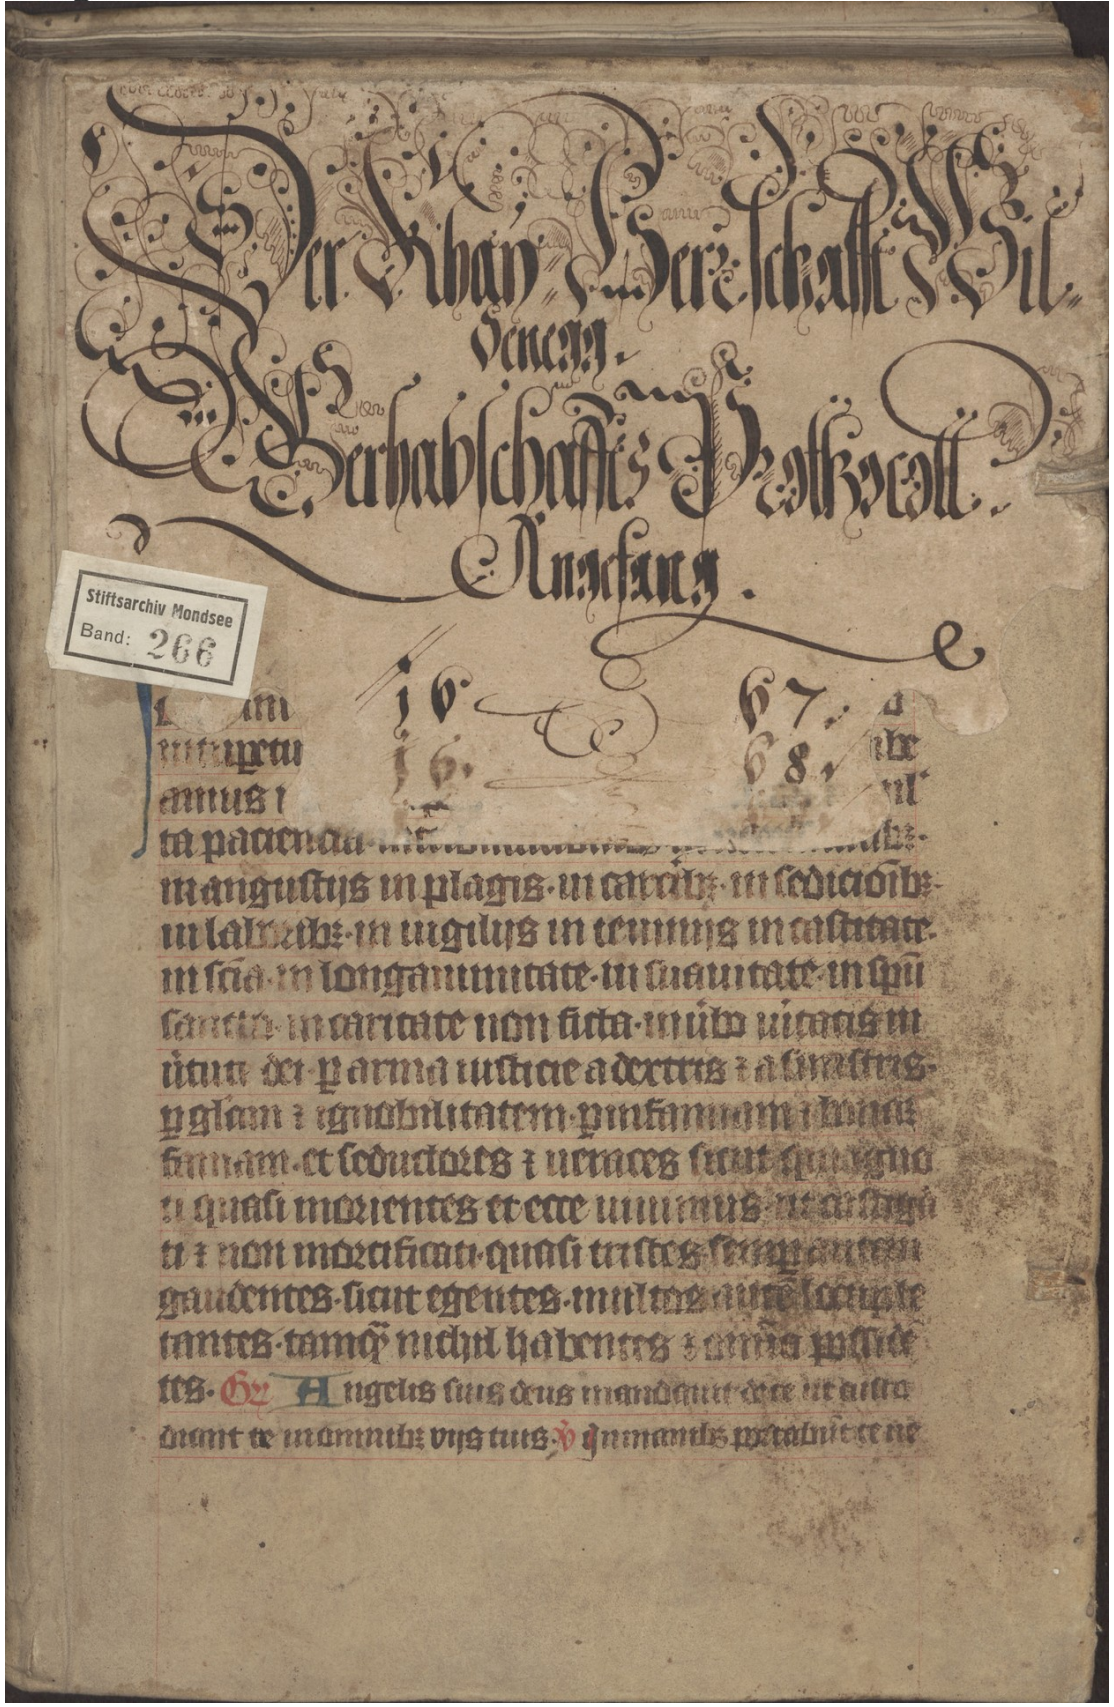 Der Khay: Herrschafft Wil-
denegg.
Gerhabschaffts Prothocoll
Angefang.
Stiftsarchiv Mondsee
Band: 266
16 67.
16. 68.
in
amus
ta paciencia
in angustijs in plagis · in carcībꝫ · in sedicioībꝫ ·
in laboribꝫ · in uigilijs in ieiunijs in castitate ·
in sc̄ia · in longanimitate · in suauitate · in sp̄u
sancto · in caritate non ficta · in ūbo ūitatis in
ūtute dei · ꝑ arma iusticie a dextris ⁊ a sinistris ·
ꝑ gl̄am ⁊ ignobilitatem · ꝑ infamiam ⁊ bonā
famam · et seductores ⁊ ueraces sicut qui igno
ti quasi morientes et ecce uiuimus · ut castiga
ti ⁊ non mortificati · quasi tristes semꝑ autem
gaudentes · sicut egentes · multos autē locuple
tantes · tamqͣ nichil habentes ⁊ omīa possidē
tes · Gr̄ Angelis suis deus mandauit de te ut custo
diant te in omnibꝫ vijs tuis · V̄ In manibꝫ portabūt te ne